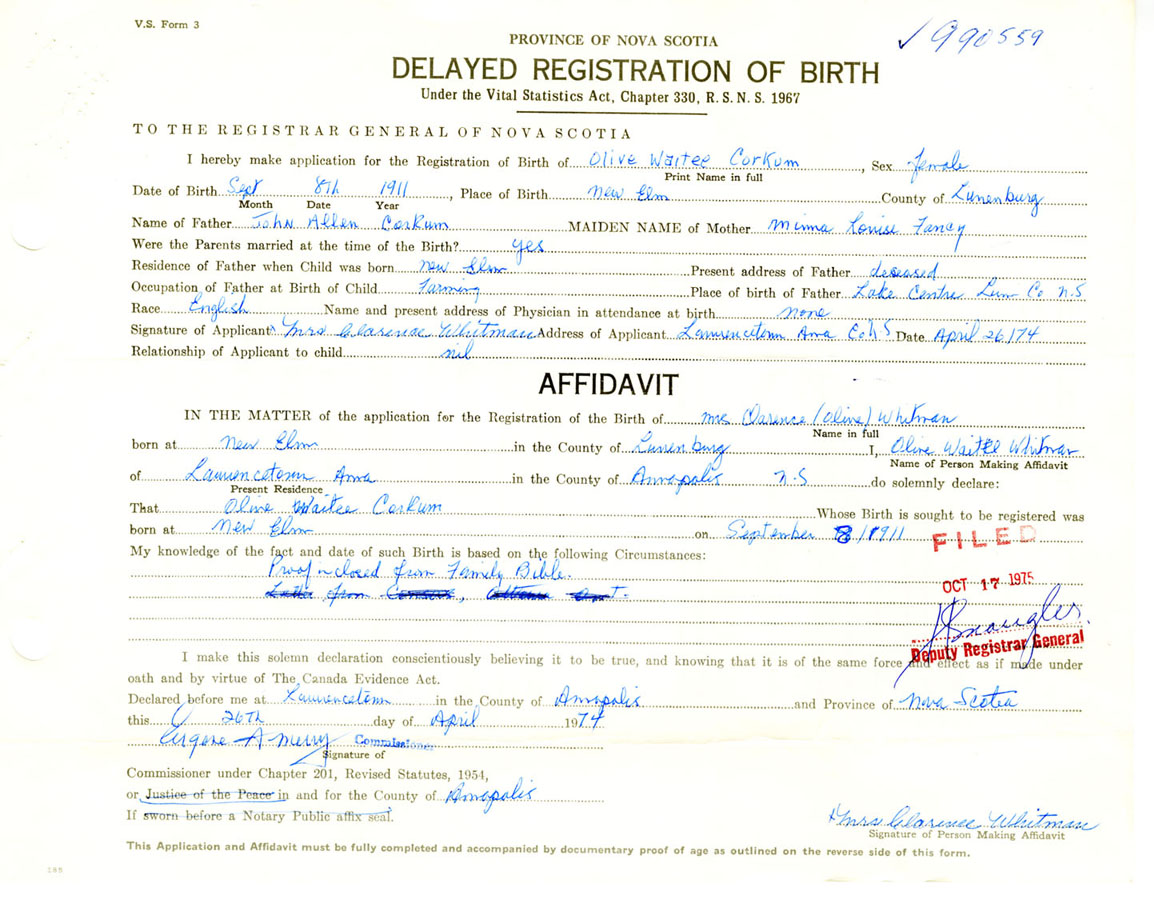 V.S. Form 3
✓ 990559
PROVINCE OF NOVA SCOTIA
DELAYED REGISTRATION OF BIRTH
Under the Vital Statistics Act, Chapter 330, R. S. N. S. 1967
TO THE REGISTRAR GENERAL OF NOVA SCOTIA
I hereby make application for the Registration of Birth of Olive Waitee Corkum, Sex female
Print Name in full
Date of Birth Sept 8th 1911, Place of Birth New Elm County of Lunenburg
Month Date Year
Name of Father John Allen Corkum MAIDEN NAME of Mother Minna Louise Fancy
Were the Parents married at the time of the Birth? yes
Residence of Father when Child was born New Elm Present address of Father deceased
Occupation of Father at Birth of Child Farming Place of birth of Father Lake Centre Lun Co N.S
Race English Name and present address of Physician in attendance at birth none
Signature of Applicant Mrs Clarence Whitman Address of Applicant Lawrencetown Anna Co N S Date April 26/74
Relationship of Applicant to child nil
AFFIDAVIT
IN THE MATTER of the application for the Registration of the Birth of Mrs Clarence (Olive) Whitman
Name in full
born at New Elm in the County of Lunenburg I, Olive Waitee Whitman
Name of Person Making Affidavit
of Lawrencetown Anna in the County of Annapolis N.S do solemnly declare:
Present Residence
That Olive Waitee Corkum Whose Birth is sought to be registered was
born at New Elm on September 8/1911
FILED
My knowledge of the fact and date of such Birth is based on the following Circumstances:
Proof inclosed from Family Bible.
Letter from Census,
OCT 17 1975
Deputy Registrar General
I make this solemn declaration conscientiously believing it to be true, and knowing that it is of the same force and effect as if made under
oath and by virtue of The Canada Evidence Act.
Declared before me at Lawrencetown in the County of Annapolis and Province of Nova Scotia
this 26th day of April 1974
Commissioner
Signature of
Commissioner under Chapter 201, Revised Statutes, 1954,
or Justice of the Peace in and for the County of Annapolis
If sworn before a Notary Public affix seal.
Mrs Clarence Whitman
Signature of Person Making Affidavit
This Application and Affidavit must be fully completed and accompanied by documentary proof of age as outlined on the reverse side of this form.